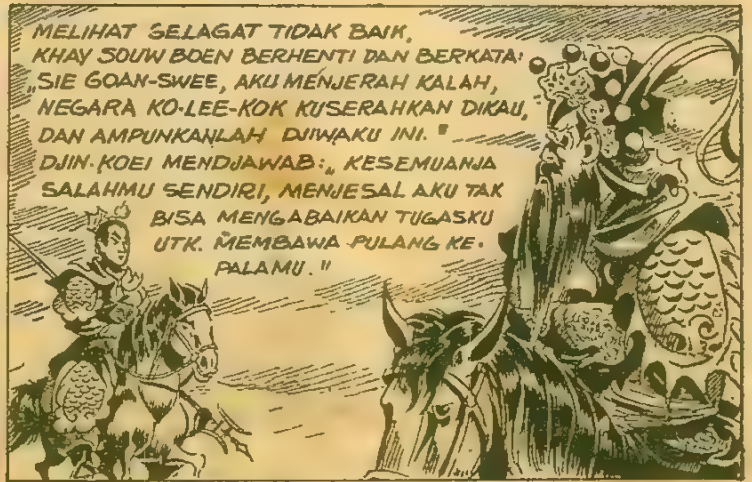 MELIHAT GELAGAT TIDAK BAIK,
KHAY SOUW BOEN BERHENTI DAN BERKATA:
„SIE GOAN-SWEE, AKU MENJERAH KALAH,
NEGARA KO-LEE-KOK KUSERAHKAN DIKAU,
DAN AMPUNKANLAH DJIWAKU INI."
DJIN-KOEI MENDJAWAB:„ KESEMUANJA
SALAHMU SENDIRI, MENJESAL AKU TAK
BISA MENGABAIKAN TUGASKU
UTK. MEMBAWA PULANG KE-
PALAMU."